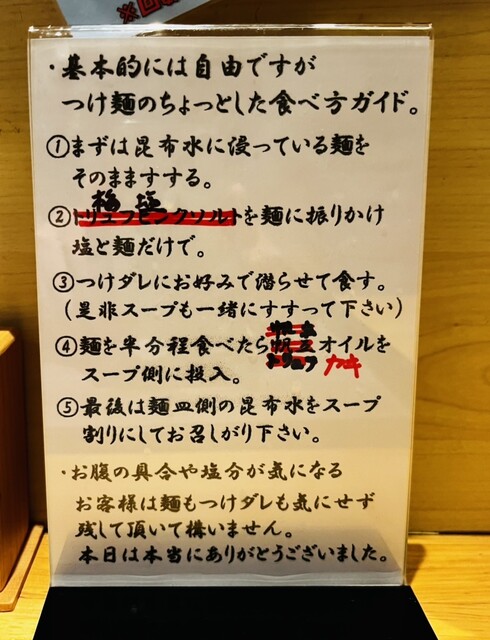 ・基本的には自由ですが
つけ麺のちょっとした食べ方ガイド。
①まずは昆布水に浸っている麺を
そのまますする。
梅塩
②トリュフピンクソルトを麺に振りかけ
塩と麺だけで。
③つけダレにお好みで潜らせて食す。
(是非スープも一緒にすすって下さい)
④麺を半分程食べたらオイルを
トリュフ カキ
スープ側に投入。
⑤最後は麺皿側の昆布水をスープ
割りにしてお召しがり下さい。
・お腹の具合や塩分が気になる
お客様は麺もつけダレも気にせず
残して頂いて構いません。
本日は本当にありがとうございました。